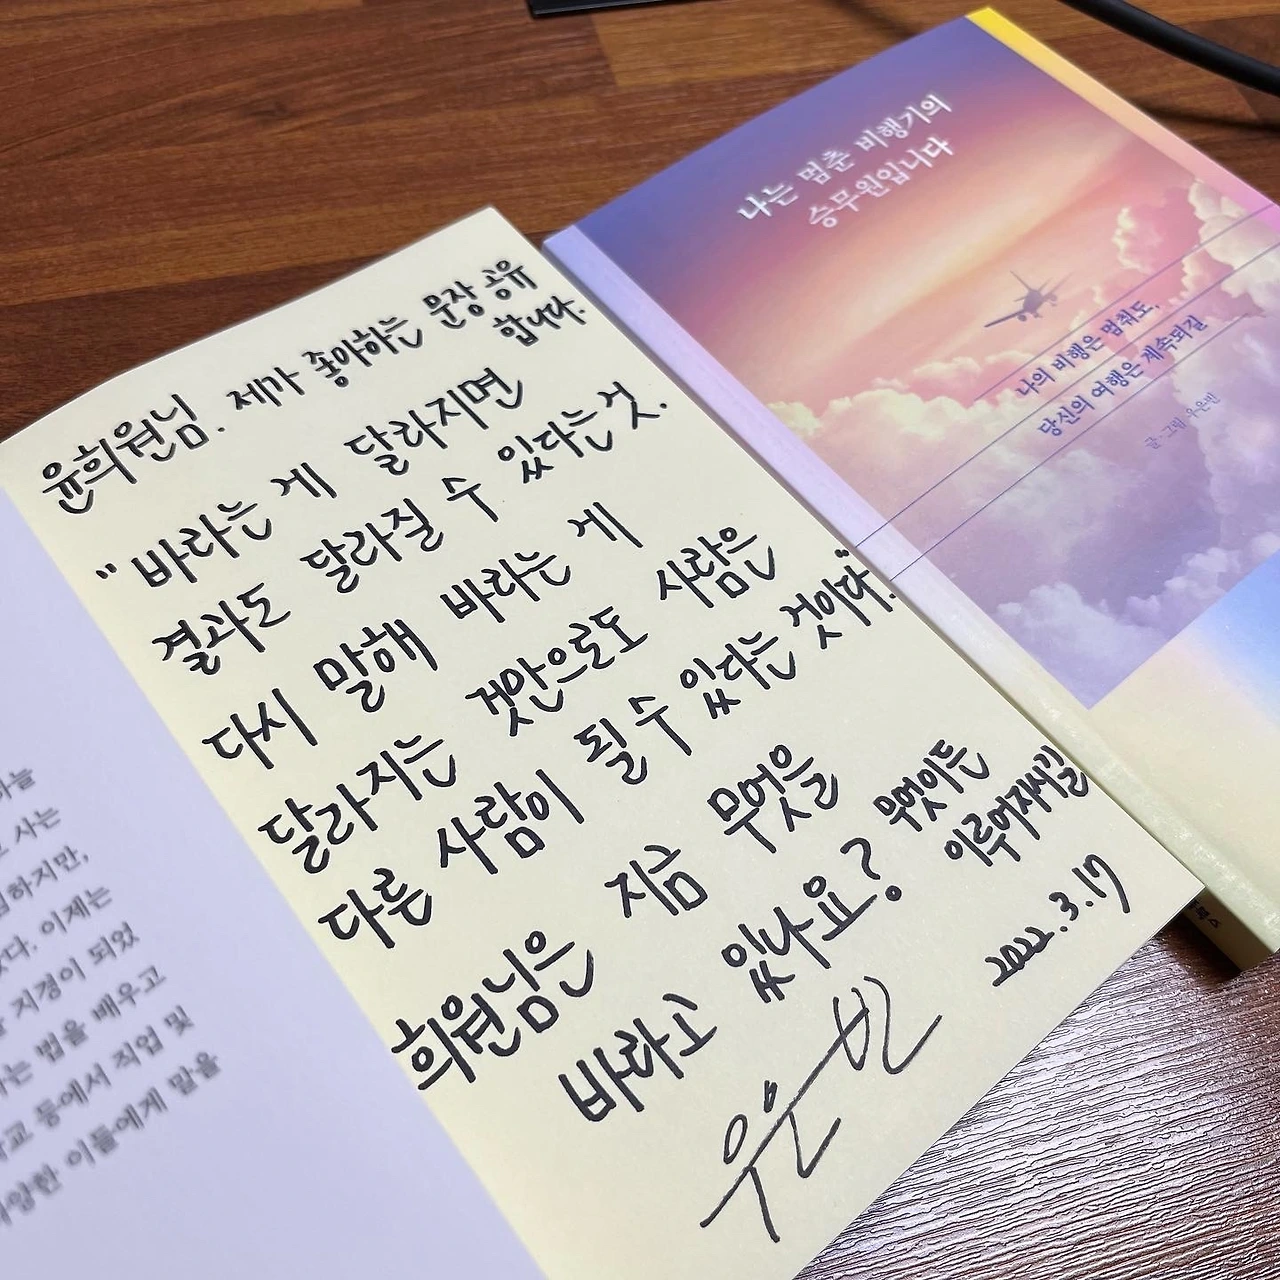 윤희원님. 제가 좋아하는 문장 공유
합니다.
"바라는 게 달라지면
결과도 달라질 수 있다는 것.
다시 말해 바라는 게
달라지는 것만으로도 사람은
다른 사람이 될 수 있다는 것이다."
희원님은 지금 무엇을
바라고 있나요? 무엇이든
이루어지시길
2022.3.17
우은빈
나는 멈춘 비행기의
승무원입니다
나의 비행은 멈춰도,
당신의 여행은 계속되길
글·그림 우은빈
사는
하지만,
이제는
지경이 되었
는 법을 배우고
교 등에서 직업 및
양한 이들에게 말을